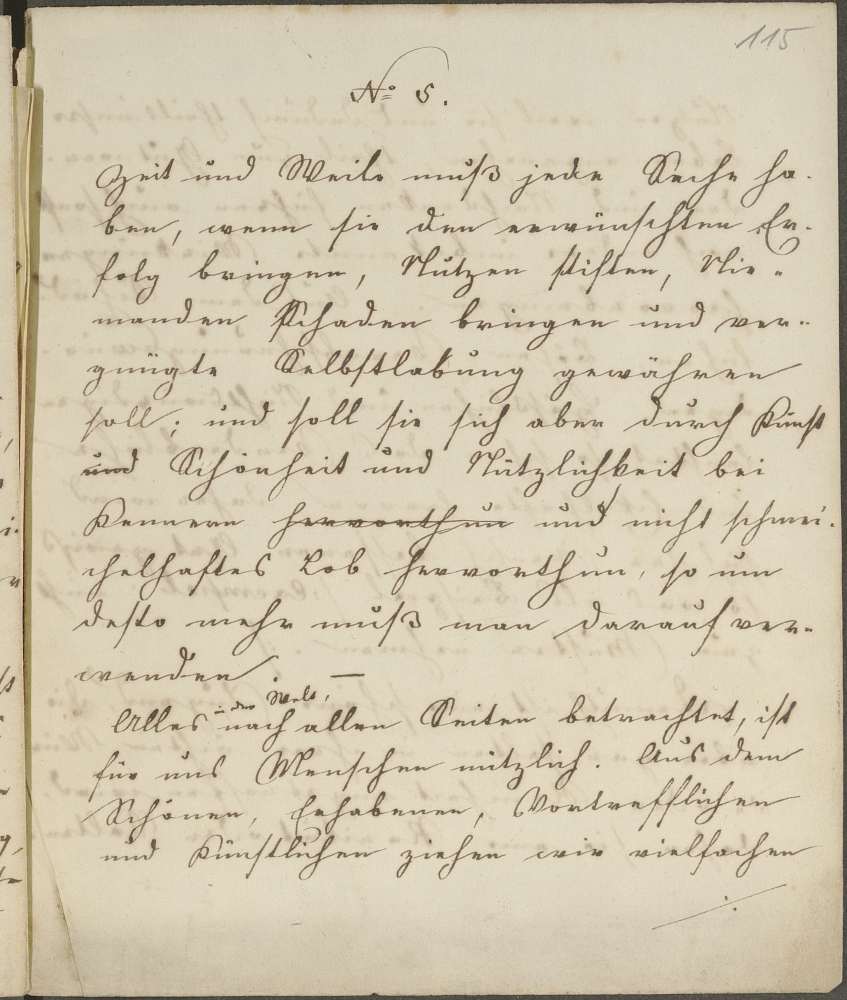 115
No 5.
Zeit und Weile muß jede Sache ha-
ben, wenn sie den erwünschten Er-
folg bringen, Nutzen stiften, Nie-
manden Schaden bringen und ver-
gnügte Selbstlabung gewähren
soll; und soll sie sich aber durch Kunst
und Schönheit und Nützlichkeit bei
Kennern hervorthun und nicht schmei-
chelhaftes Lob hervorthun, so um
desto mehr muß man darauf ver-
wenden. —
in der Welt,
Alles nach allen Seiten betrachtet, ist
für uns Menschen nützlich. Aus dem
Schönen, Erhabenen, Vortrefflichen
und Künstlichen ziehen wir vielfachen